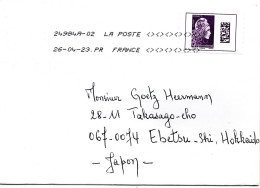 24984A-02 LA POSTE
26-04-23.PR FRANCE
Monsieur Goetz Heermann
28-11 Takasago-cho
067-0074 Ebetsu-Shi, Hokkaido
- Japon -